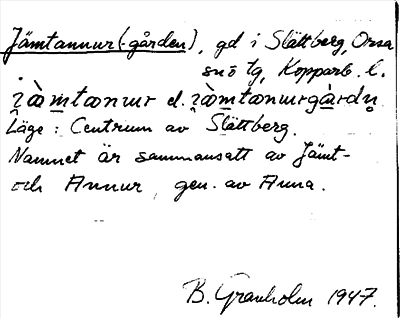 Jämtannur(-gården), gd i Slättberg, Orsa
snö tg, Kopparb. l.
Läge: Centrum av Slättberg.
Namnet är sammansatt av Jämt-
och Annur, gen. av Anna.
B. Granholm 1947.